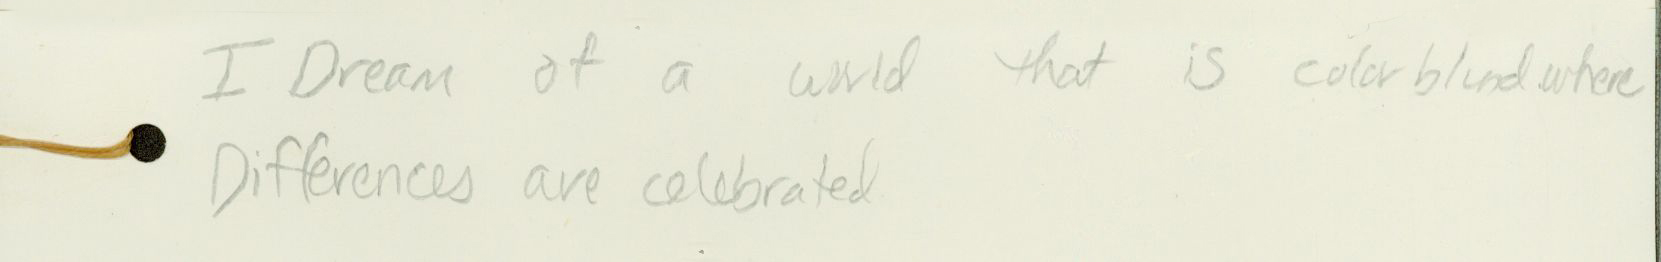 I Dream of a world that is color blind. where
Differences are celebrated